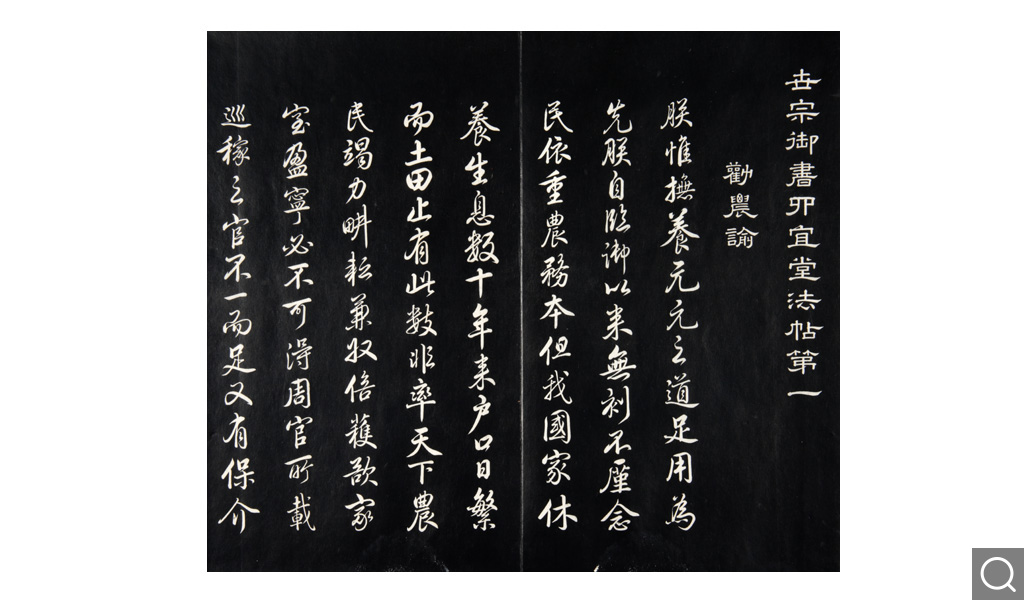 世宗御書四宜堂法帖第一
勸農諭
朕惟撫養元元之道足用為
先朕自臨御以来無刻不廑念
民依重農務本但我國家休
養生息數十年来戶口日繁
而土田止有此數非率天下農
民竭力畊耘兼収倍穫欲家
室盈寧必不可得周官所載
巡稼之官不一而足又有保介